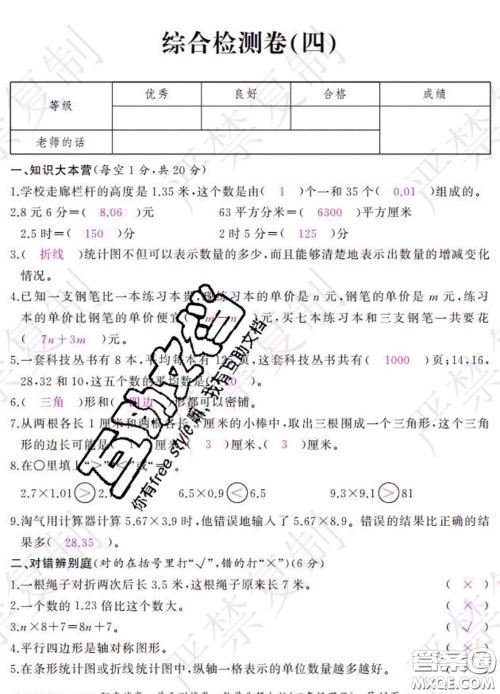 综合检测卷(四)
等级 优秀 良好 合格 成绩
老师的话
一、知识大本营(每空1分,共20分)
1.学校走廊栏杆的高度是1.35米,这个数是由( 1 )个一和35个( 0.01 )组成的。
2.8元6分=( 8.06 )元 63平方分米=( 6300 )平方厘米
2.5时=( 150 )分 2时5分=( 125 )分
3.( 折线 )统计图不但可以表示数量的多少,而且能够清楚地表示出数量的增减变化
情况。
4.已知一支钢笔比一本练习本贵,现练习本的单价是n元,钢笔的单价是m元,练习
本的单价比钢笔的单价便宜( )元,买七本练习本和三支钢笔一共要花
( 7n+3m )元。
5.一套科技丛书有8本,平均每本有12 页,这套科技丛书共有( 1000 )页;14,16,
28,32和10,这五个数的平均数是( 20 )
6.( 三角 )形和( 四边 )形都可以密铺。
7.从两根各长1厘米和两根各长 厘米的小棒中,取出三根围成一个三角形,这个三角
形的边长可能是( )厘米、( 3 )厘米、( 3 )厘米。
8.在○里填上“>”“<”或“=”。
2.7×1.01 > 2.7 6.5×0.9 < 6.5 9.3×9.1 > 81
9.淘气用计算器计算5.67×3.9时,他错误地输入了5.67×8.9。错误的结果比正确的结
果多( 28.35 )。
二、对错辨别庭(对的在括号里打“√”,错的打“×”)(6分)
1.一根绳子对折两次后长3.5米,这根绳子原来长7米。 ( × )
2.一个数的1.23倍比这个数大。 ( × )
3.n×8+7=8n+7。 ( √ )
4.平行四边形是轴对称图形。 ( × )
5.在条形统计图或折线统计图中,纵轴一格表示的单位数量越多越好。 ( × )
严禁复制
互助文档
你有free style嘛,我有互助文档
答案圈
MXQE.COM